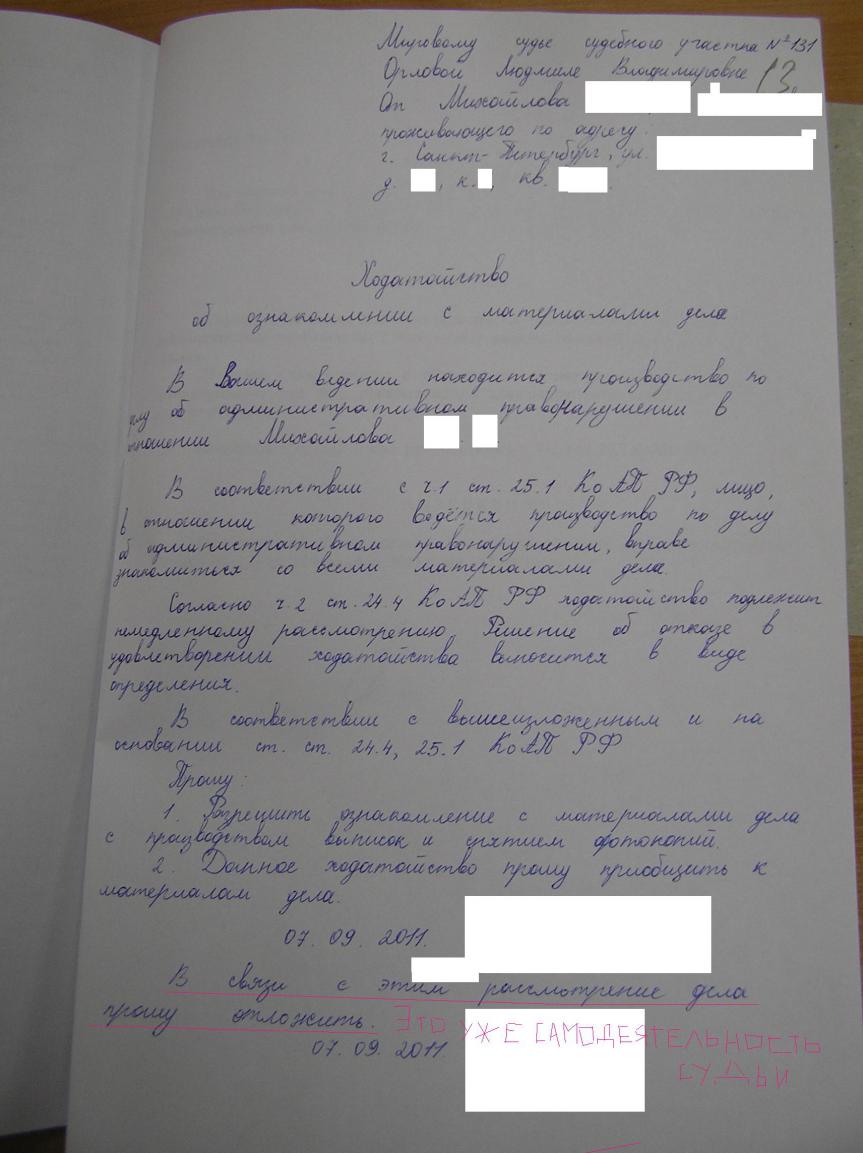 Мировому судье судебного участка №131
Орловой Людмиле Владимировне
13.
От Михайлова
проживающего по адресу:
г. Санкт-Петербург, ул.
д. , к. , кв. .
Ходатайство
об ознакомлении с материалами дела
В Вашем ведении находится производство по
делу об административном правонарушении в
отношении Михайлова . .
В соответствии с ч.1 ст. 25.1 КоАП РФ, лицо,
в отношении которого ведётся производство по делу
об административном правонарушении, вправе
знакомиться со всеми материалами дела.
Согласно ч.2 ст. 24.4 КоАП РФ ходатайство подлежит
немедленному рассмотрению. Решение об отказе в
удовлетворении ходатайства выносится в виде
определения.
В соответствии с вышеизложенным и на
основании ст. ст. 24.4, 25.1 КоАП РФ
Прошу:
1. Разрешить ознакомление с материалами дела
с производством выписок и снятием фотокопий.
2. Данное ходатайство прошу приобщить к
материалам дела.
07. 09. 2011.
В связи с этим рассмотрение дела
прошу отложить. ЭТО УЖЕ САМОДЕЯТЕЛЬНОСТЬ
СУДЬИ
07. 09. 2011.